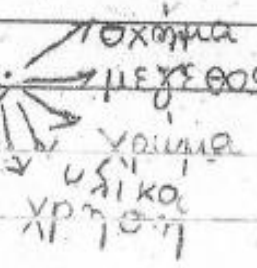 σχήμα
μεγεθος
χρώμα
υλικά
χρηση